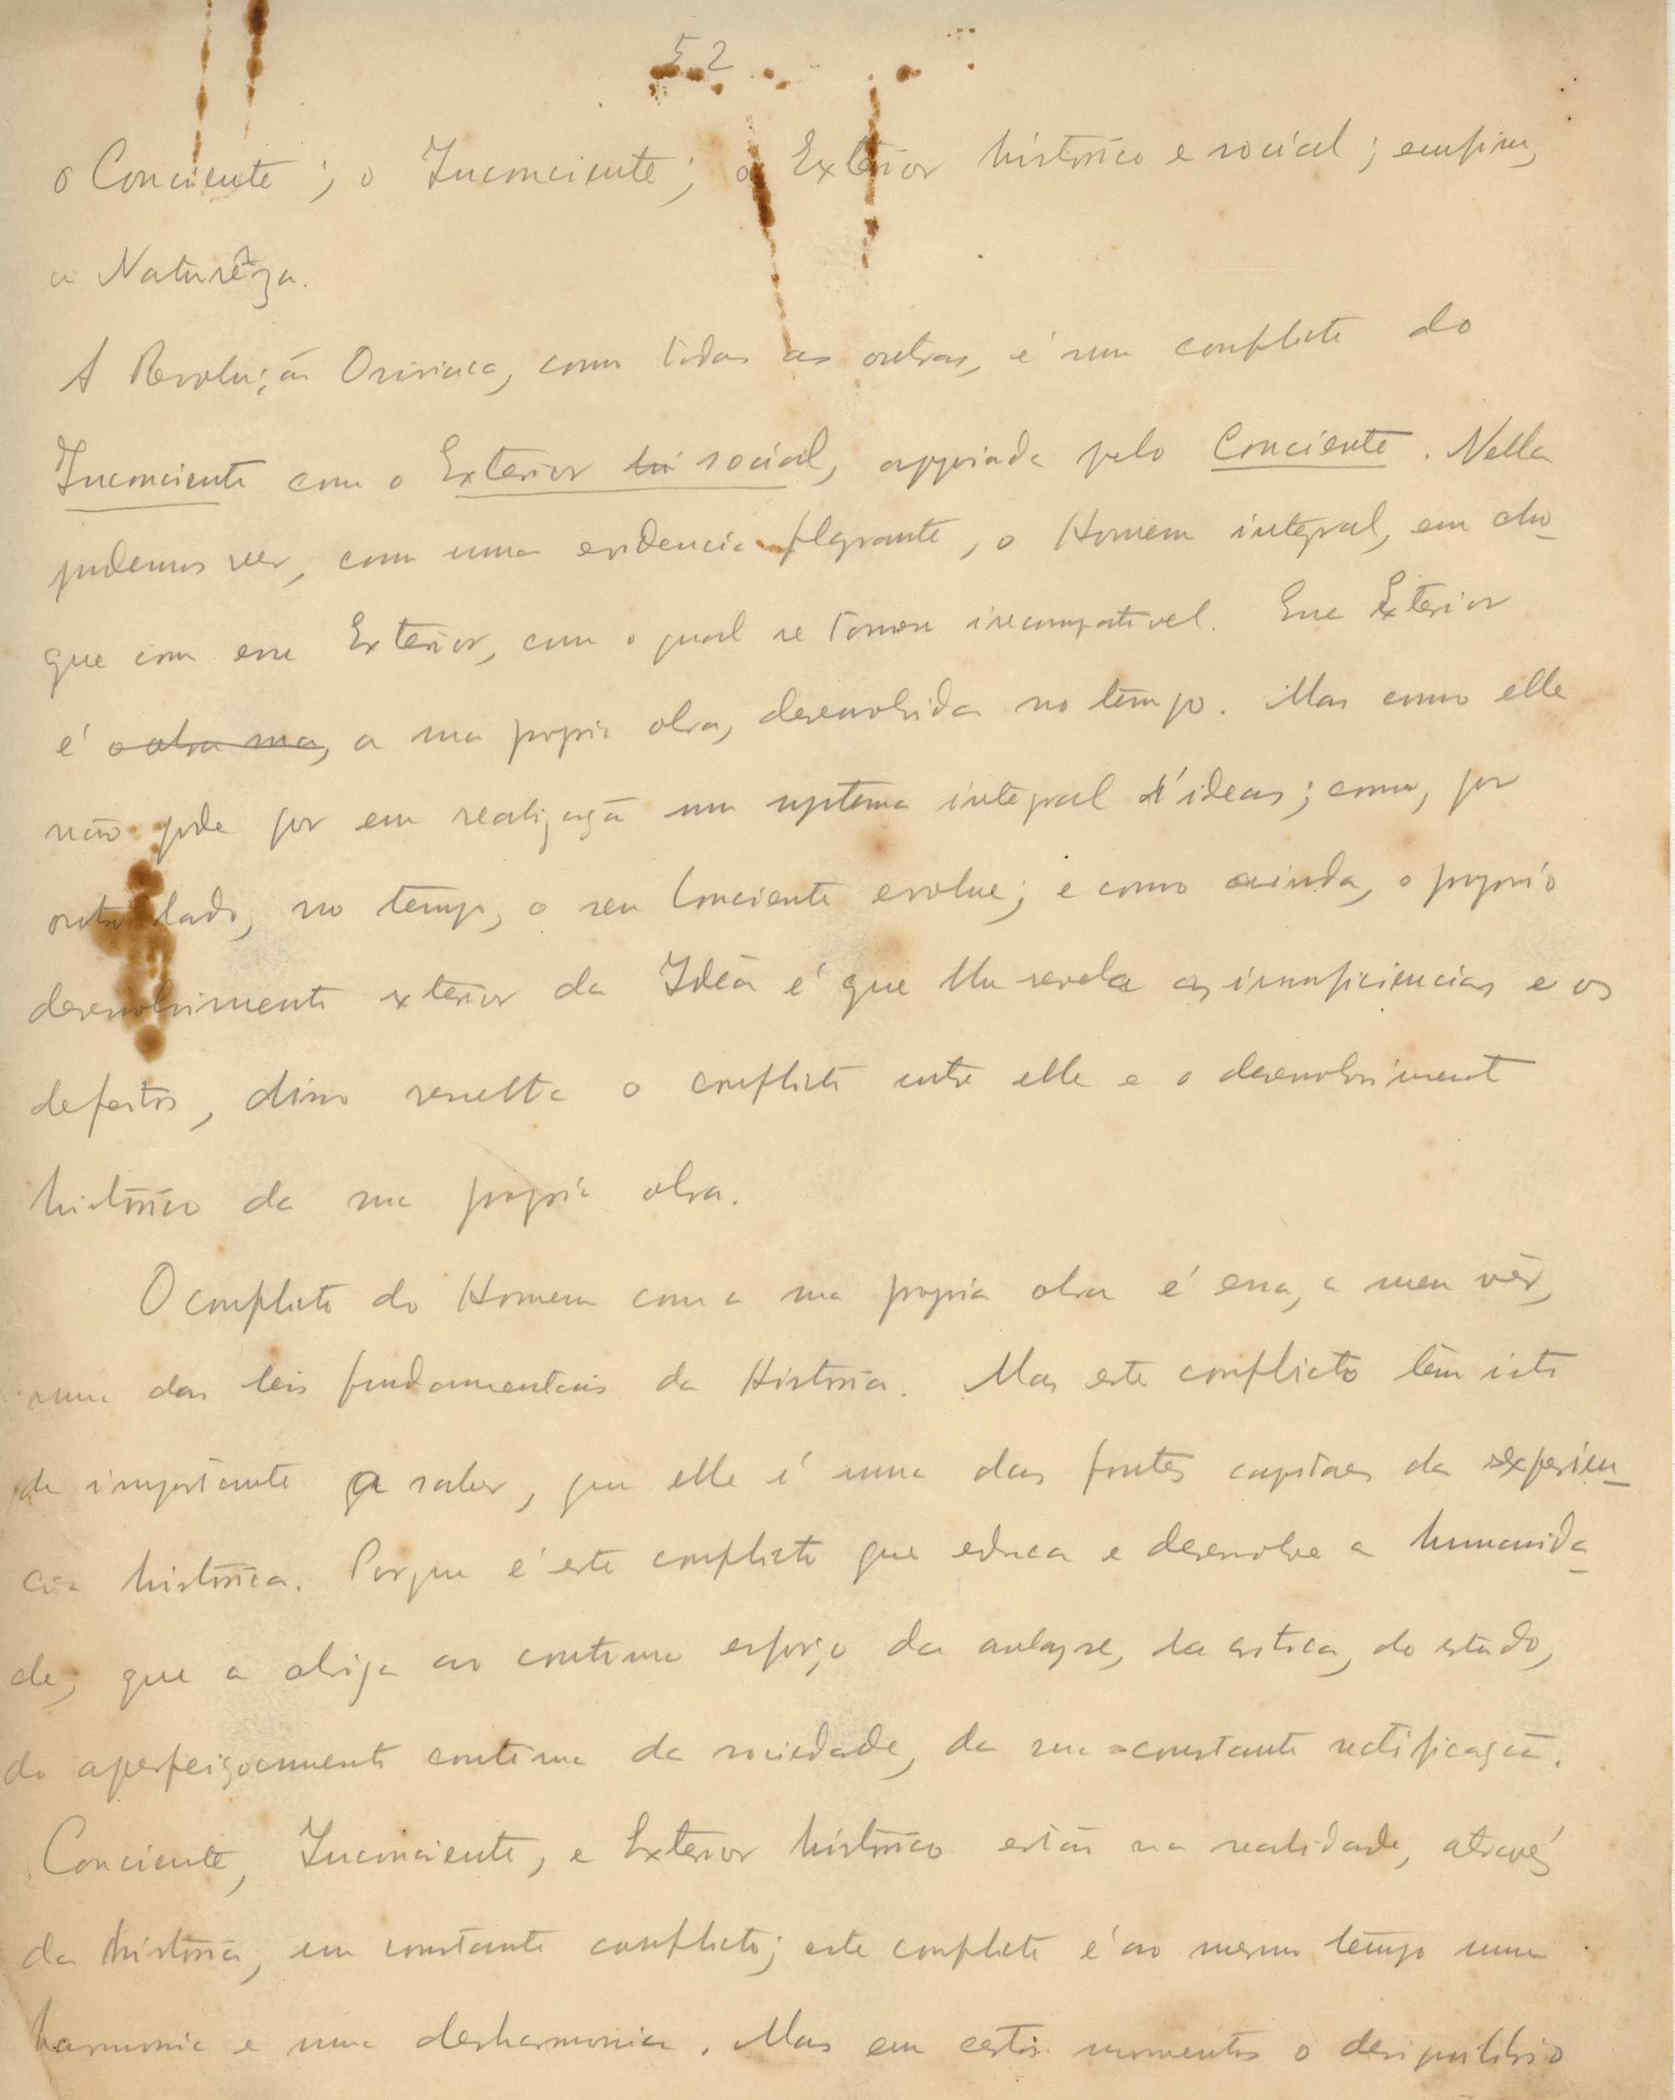 52
o Conciente; o Inconciente; o Exterior historico e social; emfim,
a Naturêza.
A Revolução Osiriaca, como todas as outras, é um conflicto do
Inconciente com o Exterior hi social, appoiada pelo Conciente. Nella
podemos ver, com uma evidencia flagrante, o Homem integral, em cho-
que com esse Exterior, com o qual se tornou incompativel. Esse Exterior
é a obra sua, a sua propria obra, desenvolvida no tempo. Mas como elle
não pode por em realização um systema integral d'ideas; como, por
outro lado, no tempo, o seu Conciente evolue; e como ainda, o proprio
desenvolvimento exterior da Idéa é que lhe revela as insuficiencias e os
defeitos, disso resulta o conflicto entre elle e o desenvolvimento
historico da sua propria obra.
O conflicto do Homem com a sua propria obra é essa, a meu vêr,
uma das leis fundamentais da Historia. Mas este conflicto tem isto
de importante a saber, que elle é uma das fontes capitaes da experien-
cia historica. Porque é este conflicto que educa e desenvolve a humanida-
de, que a obriga ao continuo esforço da analyse, da critica, do estudo,
do aperfeiçoamento continuo da sociedade, da sua constante rectificação.
Conciente, Inconciente, e Exterior historico estão na realidade, através
da historia, em constante conflicto; este conflicto é ao mesmo tempo uma
harmonia e uma desharmonia. Mas em certos momentos o desiquilibrio